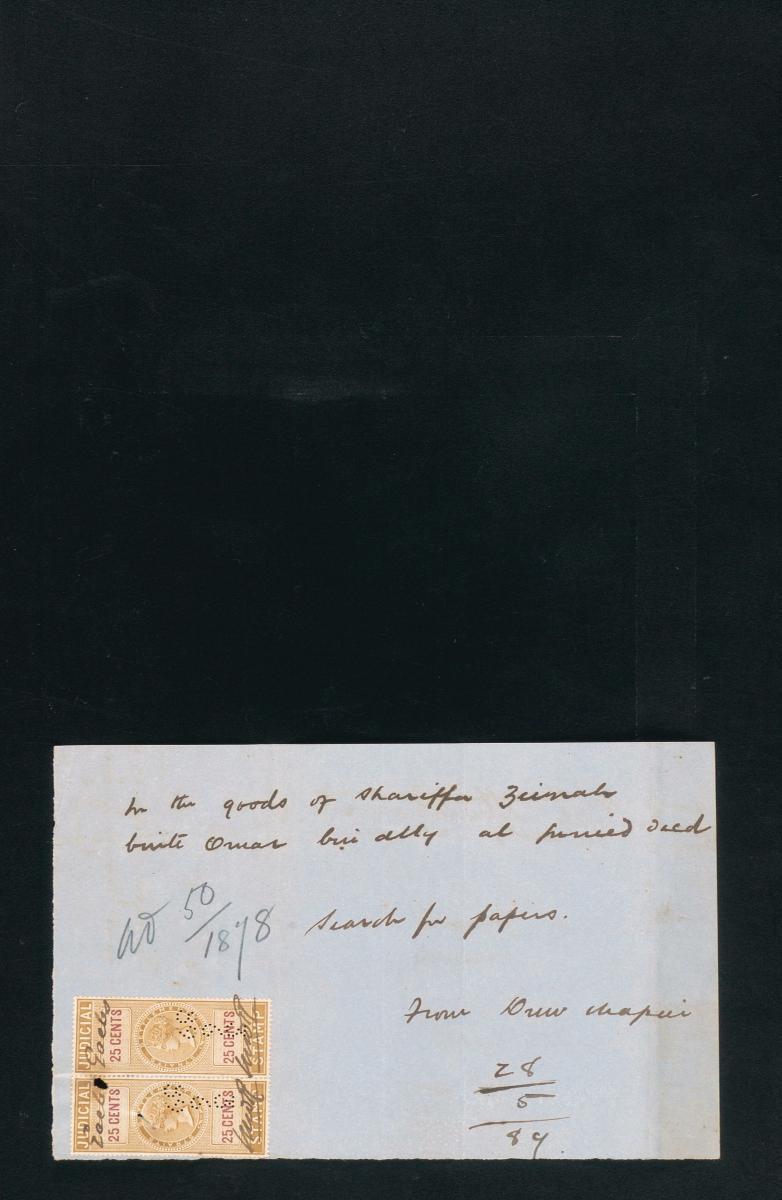 In the goods of Shariffa Zeinah
binte Omar bin Ally al Junied decd
50/1878 Search for papers.
From Drew & Napier
28
5
89.
JUDICIAL
25 CENTS
25 CENTS
STAMP
JUDICIAL
25 CENTS
25 CENTS
STAMP